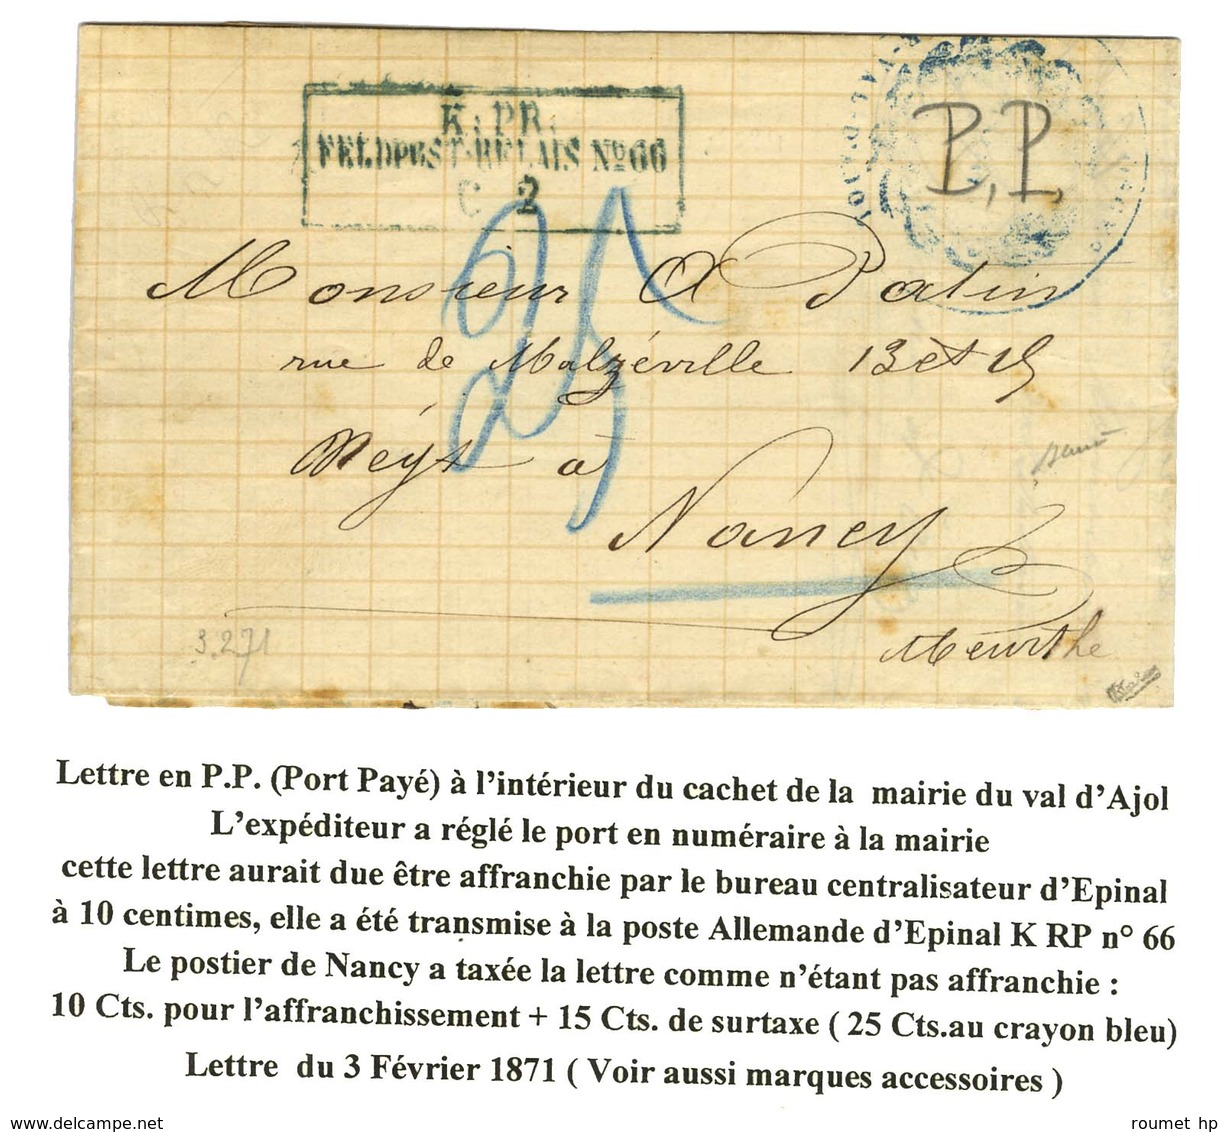 K. PR.
FELDPOST-RELAIS No 66
C 2
VAL-D'AJOL
P.P.
25
Monsieur A Patin
rue de Malzéville 13 et 15
Négt à
Nancy
Meurthe
3.2.71
Lettre en P.P. (Port Payé) à l'intérieur du cachet de la mairie du val d'Ajol
L'expéditeur a réglé le port en numéraire à la mairie
cette lettre aurait due être affranchie par le bureau centralisateur d'Epinal
à 10 centimes, elle a été transmise à la poste Allemande d'Epinal K RP n° 66
Le postier de Nancy a taxée la lettre comme n'étant pas affranchie :
10 Cts. pour l'affranchissement + 15 Cts. de surtaxe ( 25 Cts.au crayon bleu)
Lettre du 3 Février 1871 ( Voir aussi marques accessoires )
www.delcampe.net
roumet hp